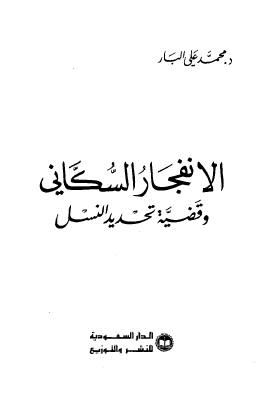 د. محمَّد علي البار
الانفجارُ السُّكَّاني
وقضيَّة تحديد النسل
الدار السعودية
للنشر والتوزيع